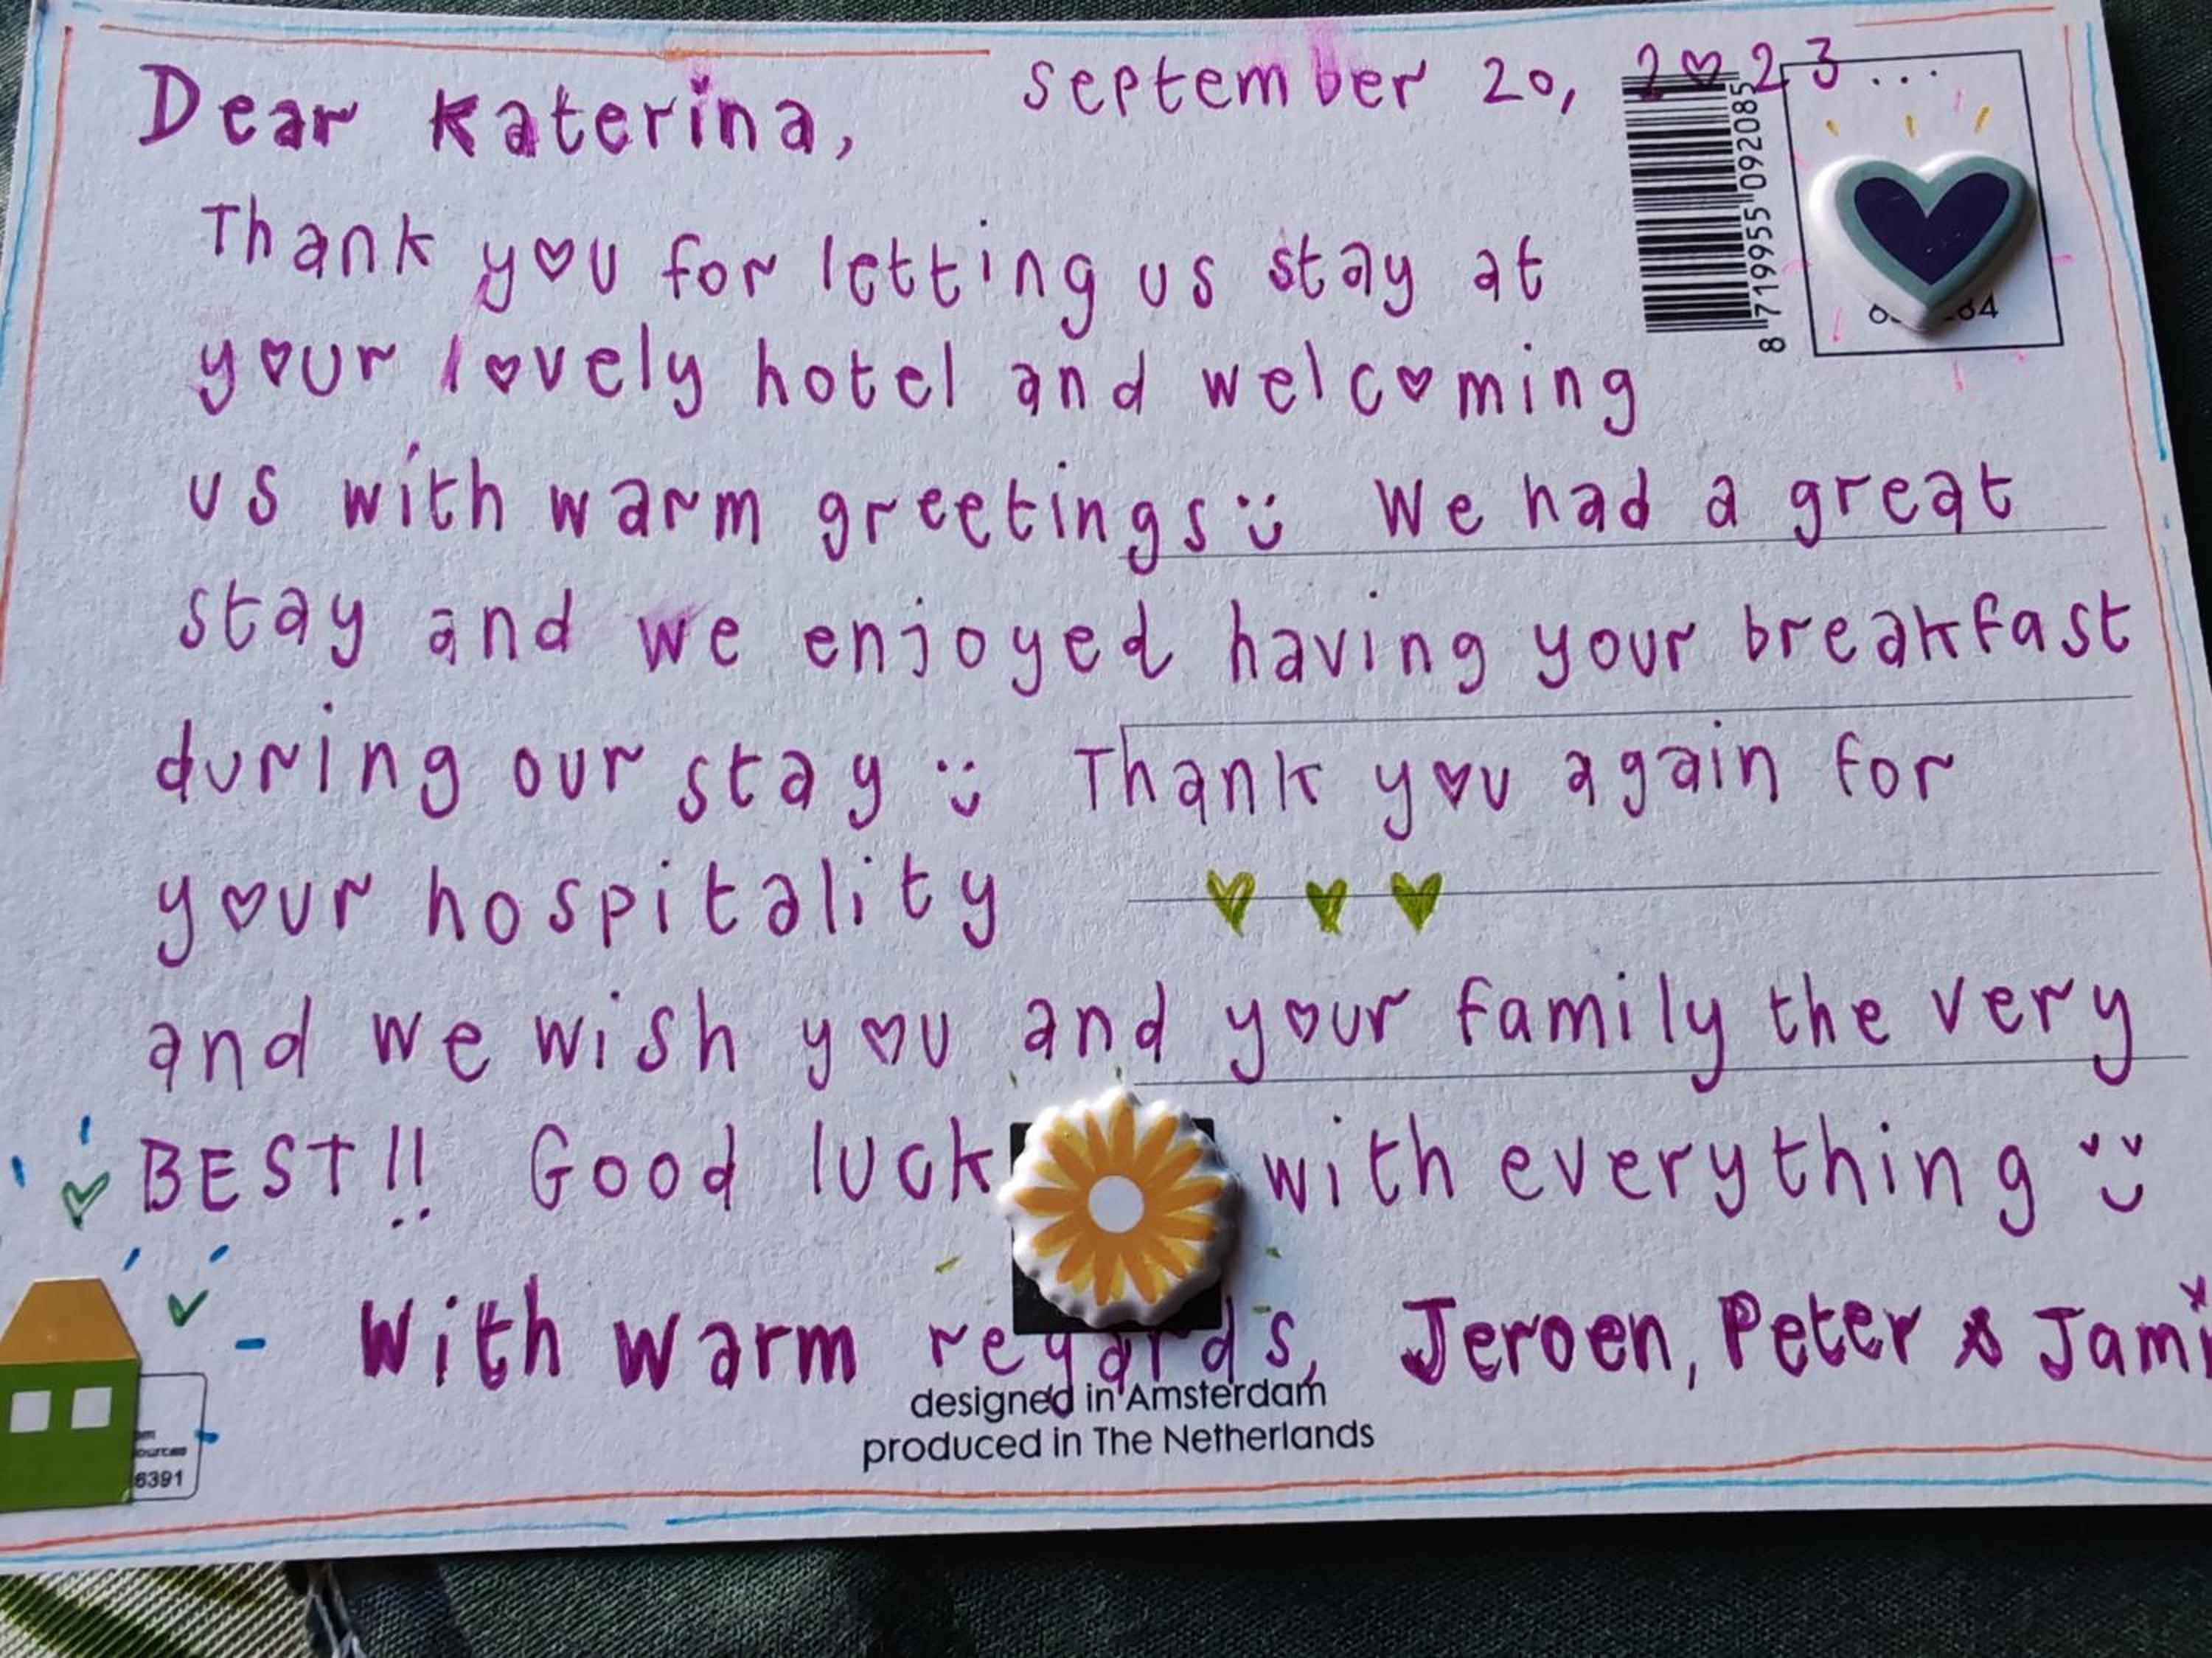 Dear Katerina, September 20, 2023...
8 719955 092085
Thank you for letting us stay at
your lovely hotel and welcoming
us with warm greetings :) We had a great
stay and we enjoyed having your breakfast
during our stay :) Thank you again for
your hospitality ♥ ♥ ♥
and we wish you and your family the very
BEST!! Good luck with everything :)
- With warm regards, Jeroen, Peter & Jami
designed in Amsterdam
produced in The Netherlands
6391